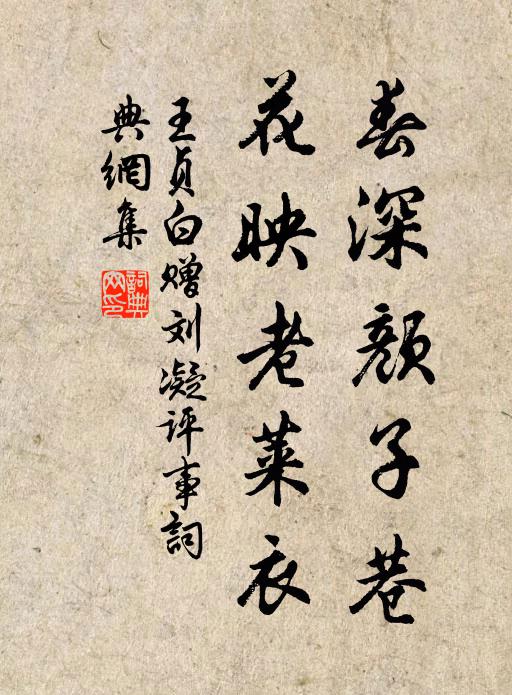 春深颜子巷
花映老莱衣
王贞白赠刘凝评事詞
典網集
詞典网印